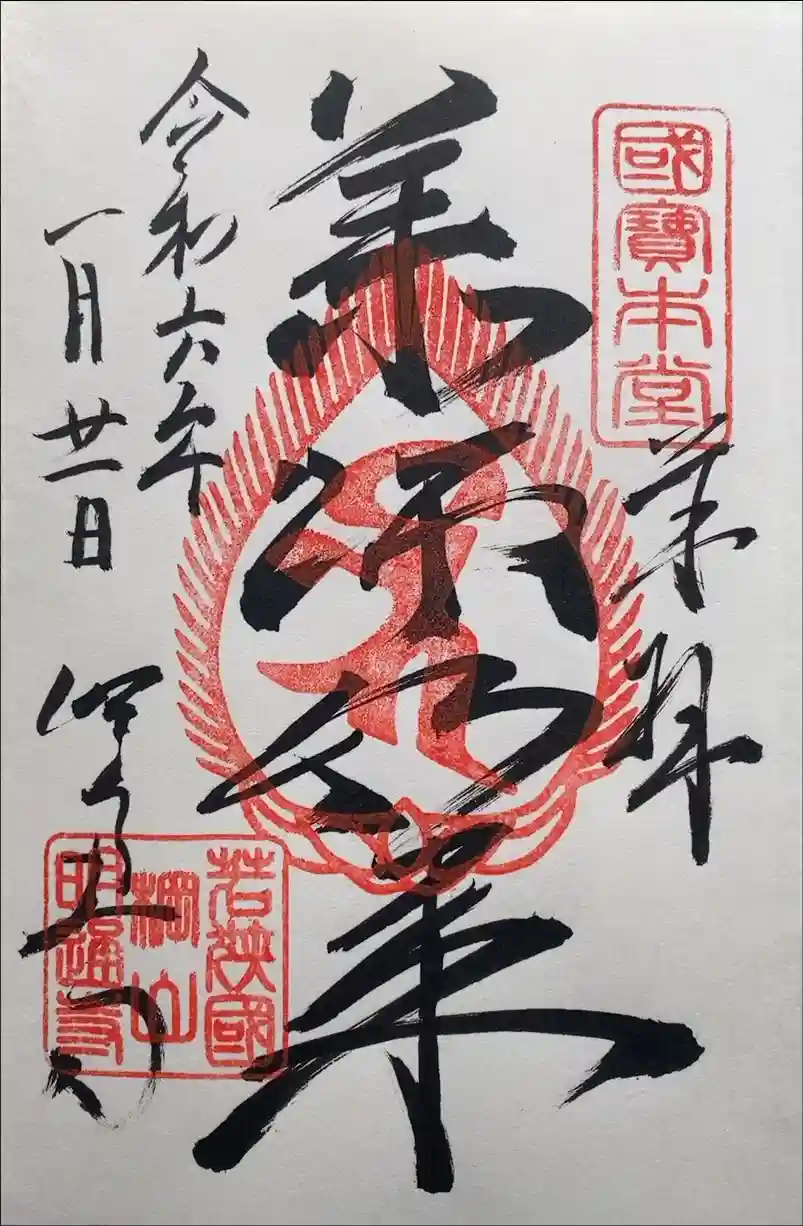 國寶本堂
奉拝
薬師如来
令和六年
一月廿一日
若狭國
棡山
明通寺